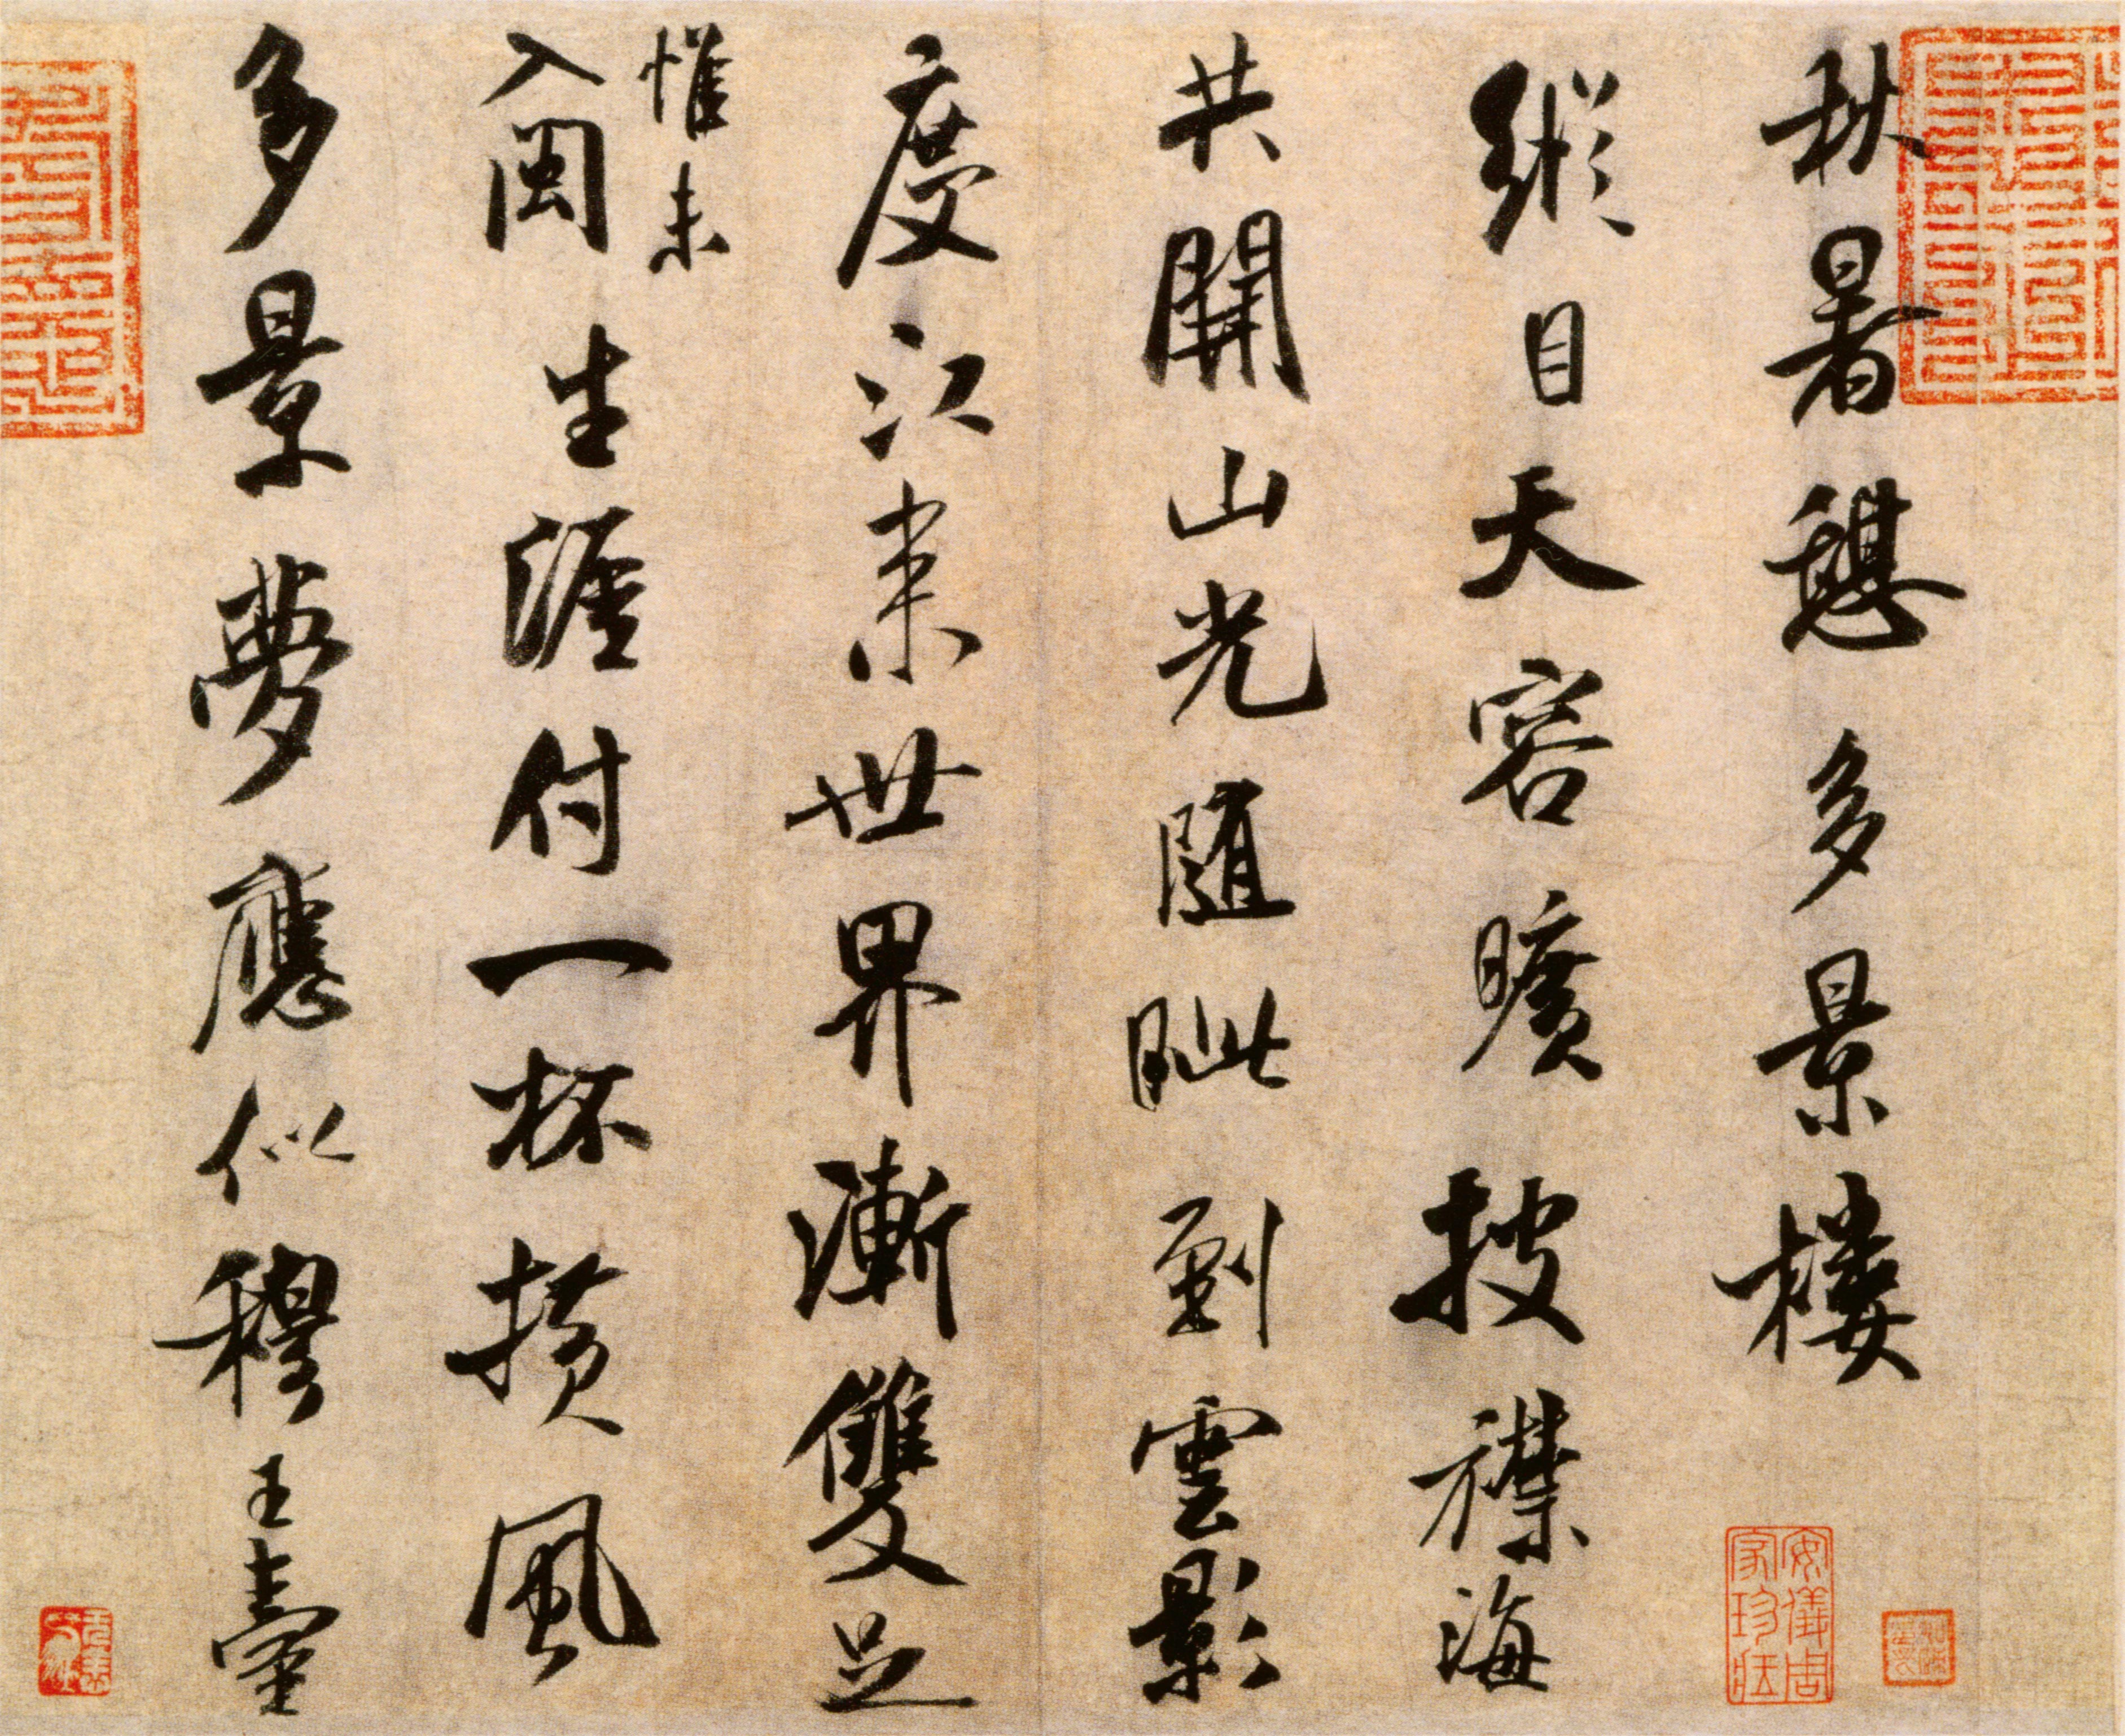 秋暑憩多景楼
縱目天容曠披襟海
共開山光隨眦到雲影
度江来世界漸雙足
惟未
入閩生涯付一杯横風
多景夢應似穆王臺
安儀周家珍藏